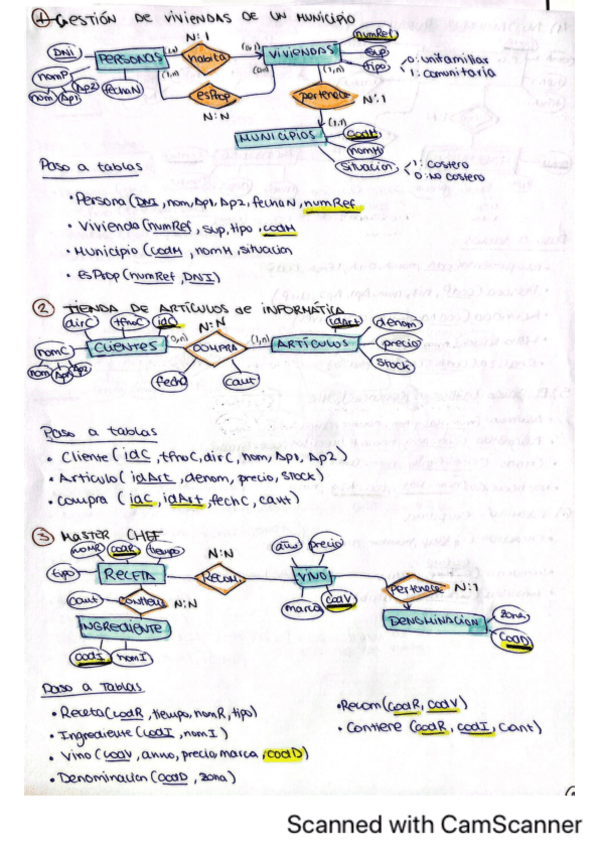 ① GESTIÓN DE VIVIENDAS DE UN MUNICIPIO
N:1
numRef
DNI
PERSONAS
(1,n)
habita
(0,1)
VIVIENDAS
sup
tipo
0: unifamiliar
1: comunitaria
nomP
nom
Ap1
Ap2
fechaN
(1,n)
esProp
(0,n)
(1,n)
pertenece
N:1
N:N
(1,1)
MUNICIPIOS
codM
nomM
situación
1: costero
0: no costero
Paso a tablas
• Persona (DNI, nom, Ap1, Ap2, fechaN, numRef
• Vivienda (numRef, sup, tipo, codM
• Municipio (codM, nomM, situacion
• EsProp (numRef, DNI)
② TIENDA DE ARTÍCULOS de INFORMÁTICA
dirC
tfnoC
idC
N:N
idArt
denom
nomC
CLIENTES
(0,n)
COMPRA
(1,n)
ARTÍCULOS
precio
nom
Ap1
Ap2
stock
fecha
cant
Paso a tablas
• Cliente (idC, tfnoC, dirC, nom, Ap1, Ap2)
• Articulo (idArt, denom, precio, stock)
• compra (idC, idArt, fechC, cant)
③ MASTER CHEF
nomR
codR
tiempo
N:N
año
precio
tipo
RECETA
Recom.
VINO
Pertenece
N:1
cant
contiene
N:N
marca
codV
DENOMINACION
zona
INGREDIENTE
CodD
codI
nomI
Paso a Tablas
• Receta (codR, tiempo, nomR, tipo)
• Ingrediente (codI, nomI)
• Vino (codV, anno, precio, marca, codD)
• Denominacion (codD, zona)
• Recom (codR, codV)
• Contiene (codR, codI, cant)
Scanned with CamScanner